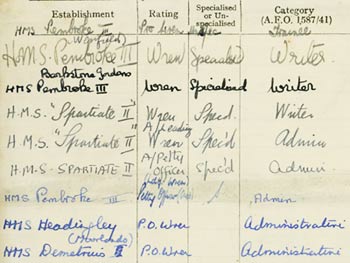 Establishment Rating Specialised or Un-specialised Category (A.F.O. 1,587/41)
HMS Pembroke Pro Wren Trainee
(Westfield)
H.M.S. Pembroke III Wren Specialised Writer
HMS Pembroke III Wren Specialised Writer
H.M.S. "Spartiate II" Wren Specd. Writer
H.M.S. "Spartiate II" A/Leading Wren Spec'd Admin
H.M.S. SPARTIATE II A/Petty Officer Wren Spec'd Admin.
HMS Pembroke III Petty Officer Admin
HMS Headingley P.O. Wren Administrative
(Moorlands)
HMS Demetrius P.O. Wren Administrative